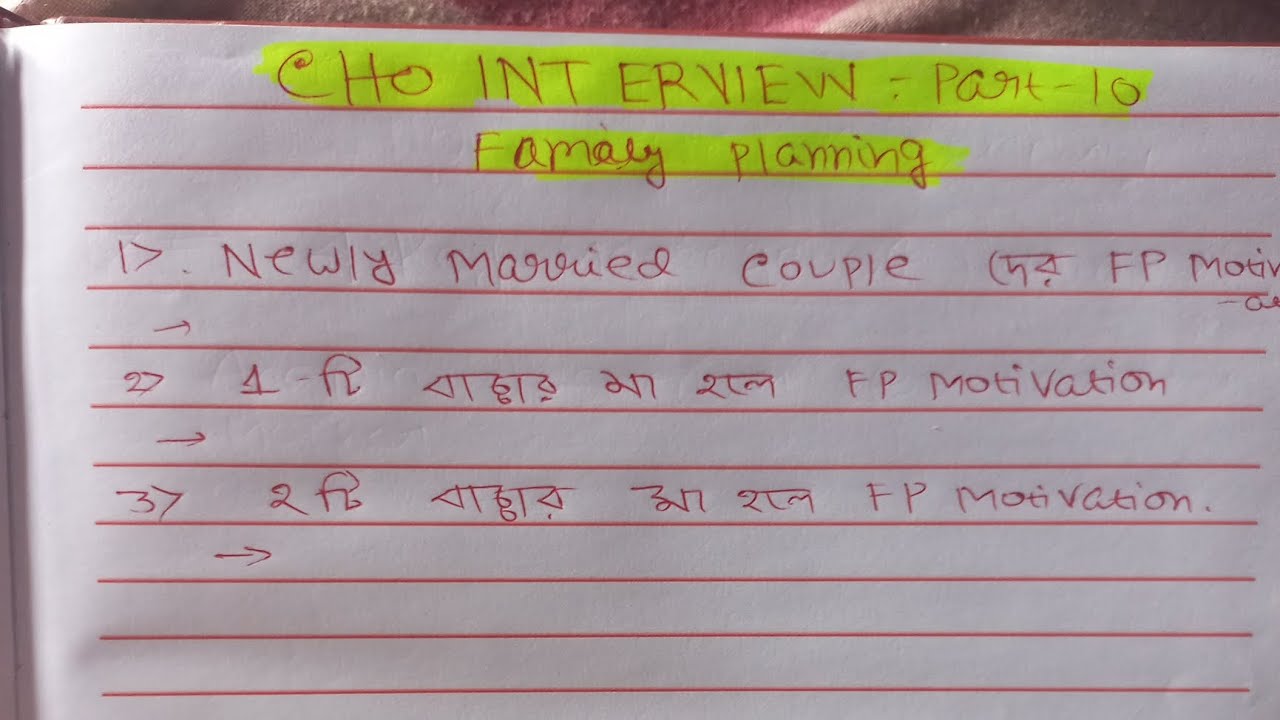 CHO INTERVIEW : Part-10
Famaly Planning
1>. Newly Married Couple দের FP Motiv
-a
→
2> 1-টি বাচ্চার মা হলে FP Motivation
→
3> ২টি বাচ্চার মা হলে FP Motivation.
→